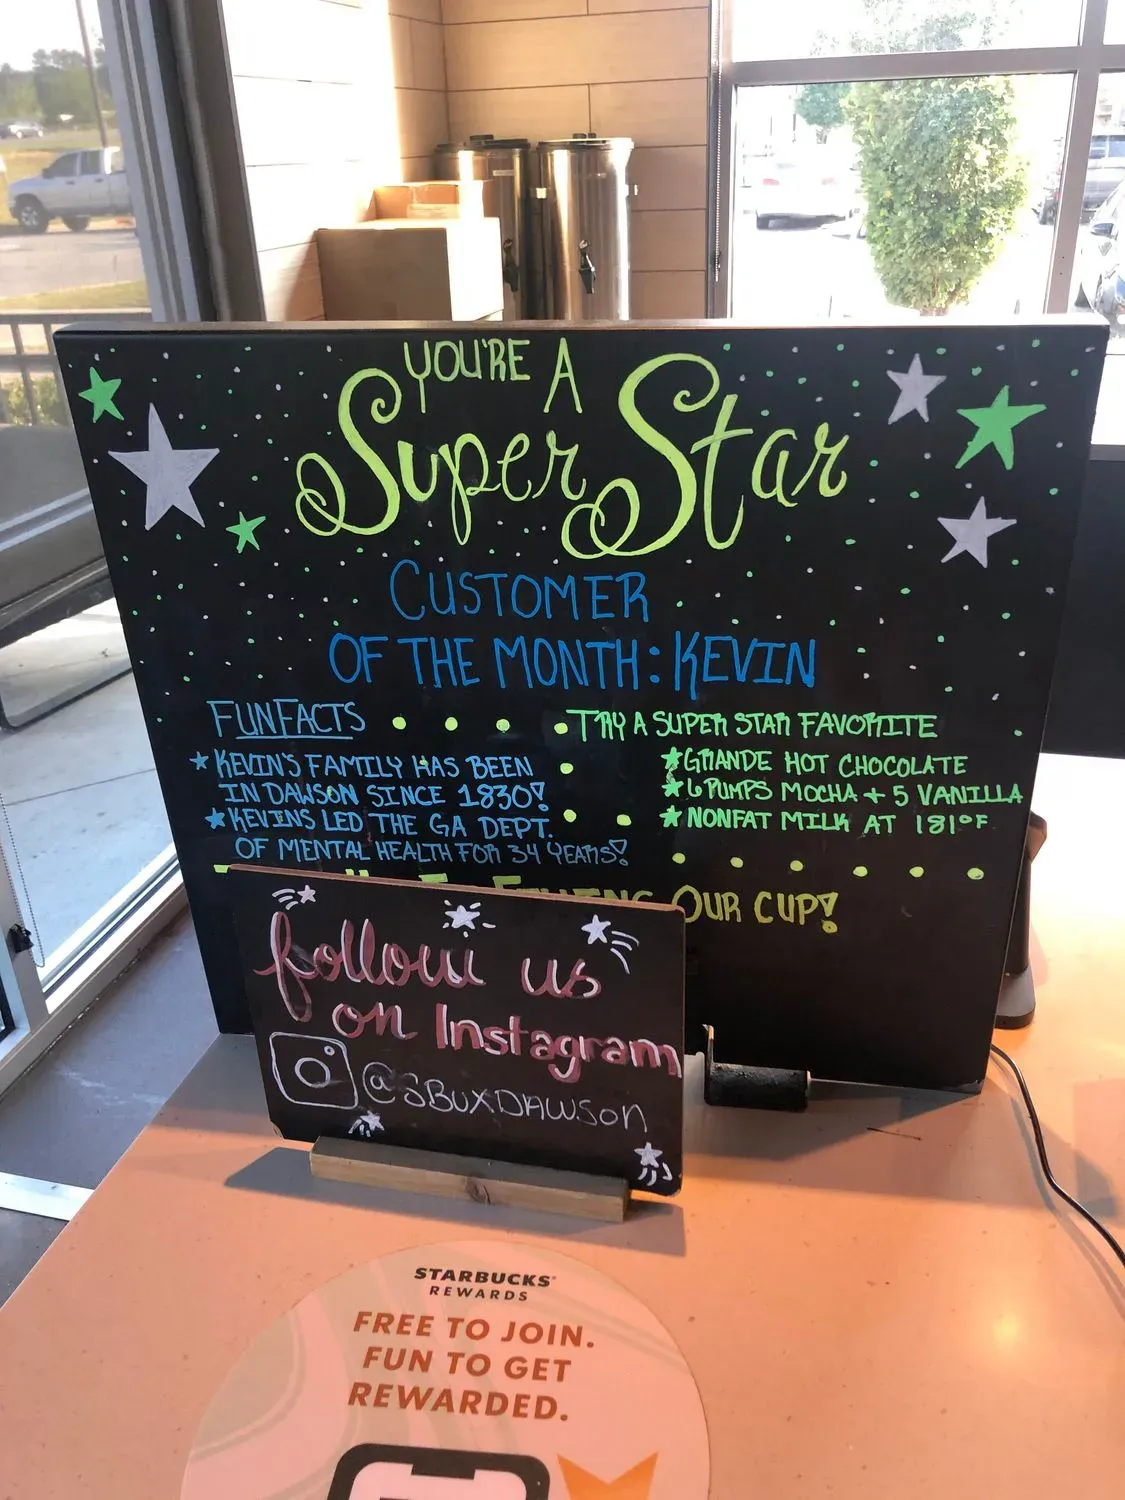 YOU'RE A
Super Star
CUSTOMER
OF THE MONTH: KEVIN
FUN FACTS
KEVIN'S FAMILY HAS BEEN
IN DAWSON SINCE 1830!
KEVINS LED THE GA DEPT.
OF MENTAL HEALTH FOR 34 YEARS!
TRY A SUPER STAR FAVORITE
GRANDE HOT CHOCOLATE
6 PUMPS MOCHA + 5 VANILLA
NONFAT MILK AT 181°F
OUR CUP!
follow us
on Instagram
@SBUXDAWSon
STARBUCKS®
REWARDS
FREE TO JOIN.
FUN TO GET
REWARDED.